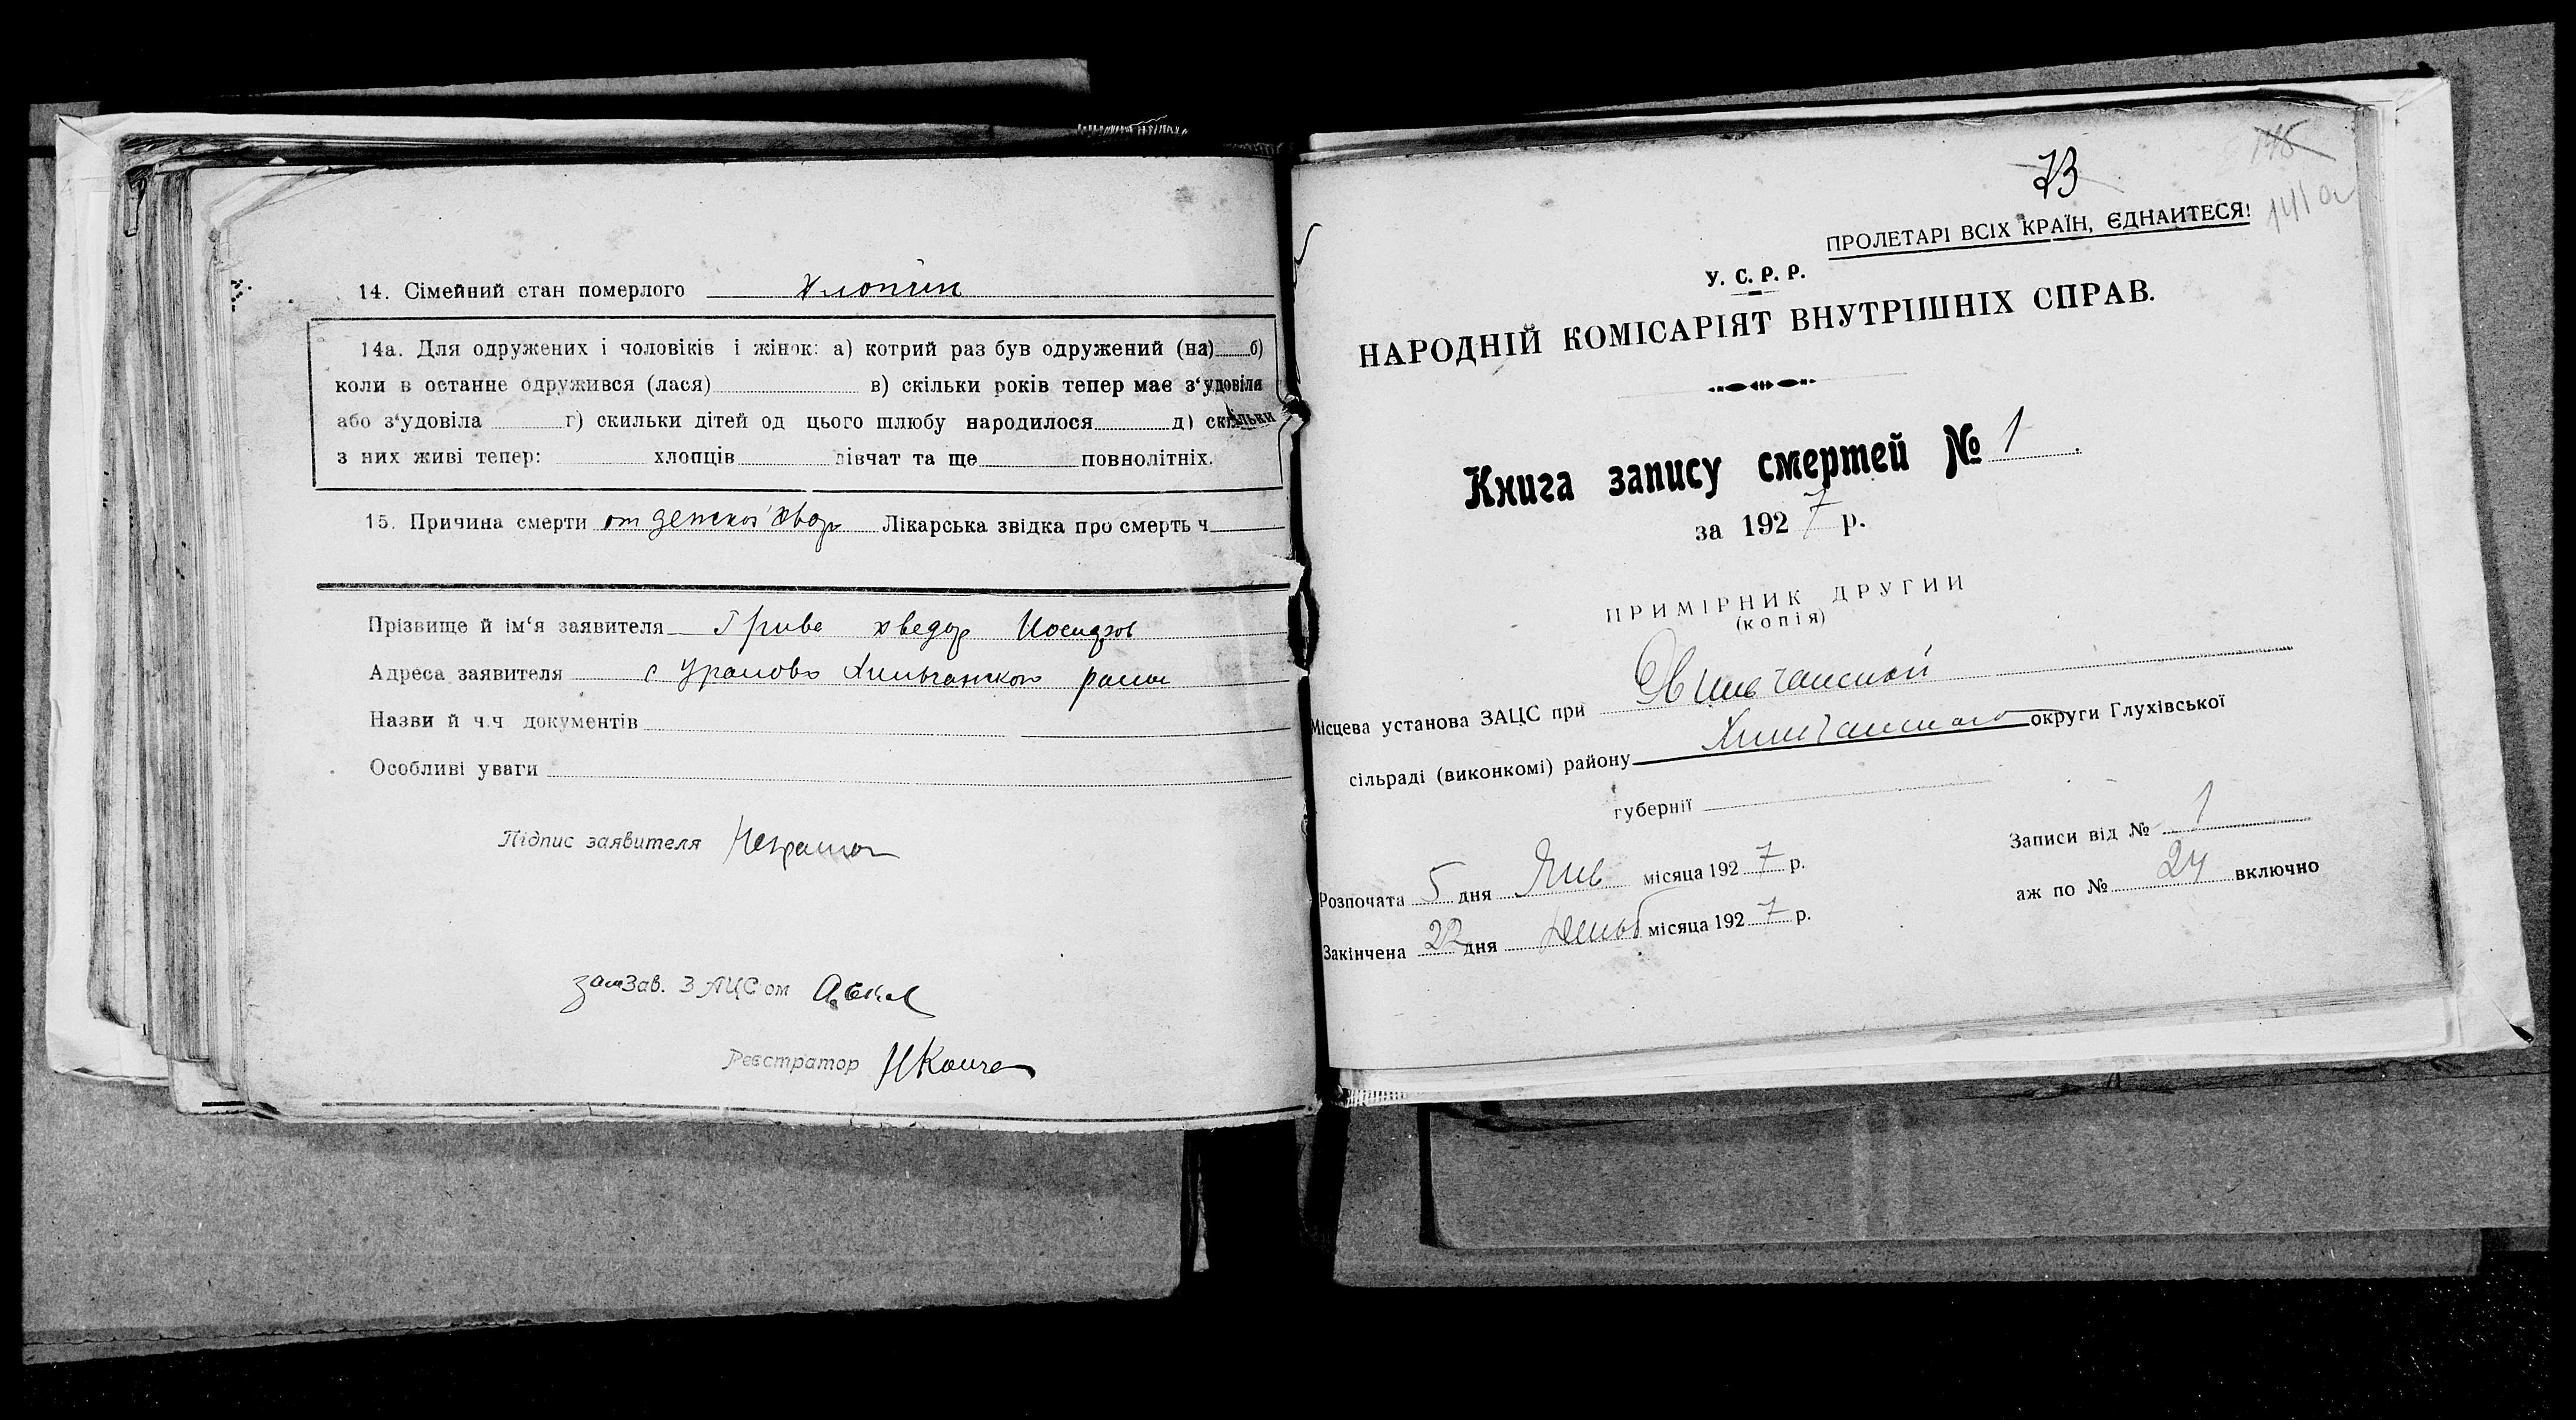 14. Сімейний стан померлого Хлопчик
14а. Для одружених і чоловіків і жінок: а) котрий раз був одружений (на) б)
коли в останнє одружився (лася) в) скільки років тепер має з‘удовіла
або з‘удовіла г) скильки дітей од цього шлюбу народилося д) скільки
з них живі тепер: хлопців дівчат та ще повнолітніх.
15. Причина смерти от детской хвор Лікарська звідка про смерть ч.
Прізвище й ім‘я заявителя Грива Хведор
Адреса заявителя с
Назви й ч.ч документів
Особливі уваги
Підпис заявителя
замЗав. ЗАЦСом
Реєстратор
73
178
141
ПРОЛЕТАРІ ВСІХ КРАЇН, ЄДНАЙТЕСЯ!
У. С. Р. Р.
НАРОДНІЙ КОМІСАРІЯТ ВНУТРІШНІХ СПРАВ.
Книга запису смертей № 1.
за 1927 р.
ПРИМІРНИК ДРУГИЙ
(копія)
Місцева установа ЗАЦС при
сільраді (виконкомі) району округи Глухівської
губернії
Записи від № 1
Розпочата 5 дня Янв місяца 1927 р.
аж по № 24 включно
Закінчена 22 дня місяца 1927 р.